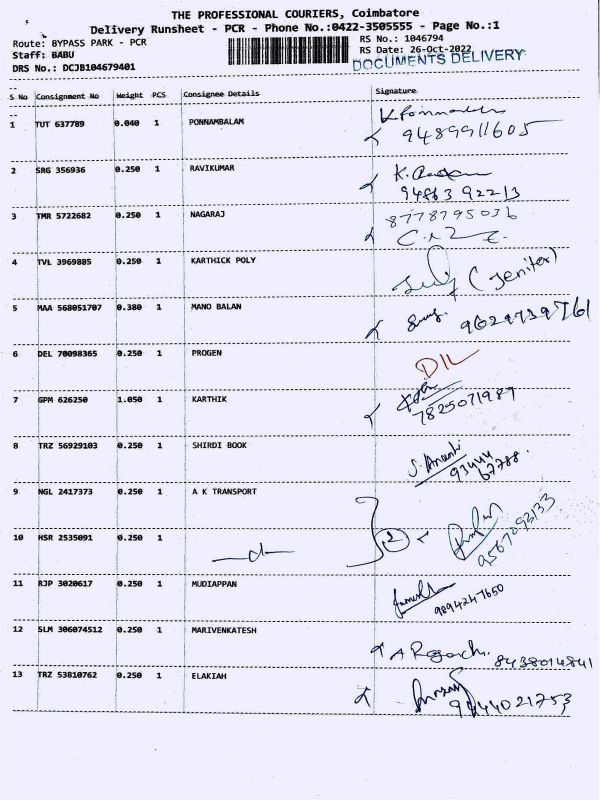 THE PROFESSIONAL COURIERS, Coimbatore
Delivery Runsheet - PCR - Phone No.:0422-3505555 - Page No.:1
Route: BYPASS PARK - PCR
RS No.: 1046794
Staff: BABU
RS Date: 26-Oct-2022
DRS No.: DCJB104679401
DOCUMENTS DELIVERY
S No Consignment No Weight PCS Consignee Details Signature
1 TUT 637789 0.040 1 PONNAMBALAM
9489911605
2 SRG 356936 0.250 1 RAVIKUMAR
94863 92213
3 TMR 5722682 0.250 1 NAGARAJ 8778795036
4 TVL 3969885 0.250 1 KARTHICK POLY
(Jenifer)
5 MAA 568051707 0.380 1 MANO BALAN
9629739761
6 DEL 70098365 0.250 1 PROGEN
D/L
7 GPM 626250 1.050 1 KARTHIK
7825071987
8 TRZ 56929103 0.250 1 SHIRDI BOOK
93444
67788
9 NGL 2417373 0.250 1 A K TRANSPORT
10 HSR 2535091 0.250 1
2
9567092133
11 RJP 3020617 0.250 1 MUDIAPPAN
9894247650
12 SLM 306074512 0.250 1 MARIVENKATESH
8438014841
13 TRZ 53810762 0.250 1 ELAKIAH
9444021753